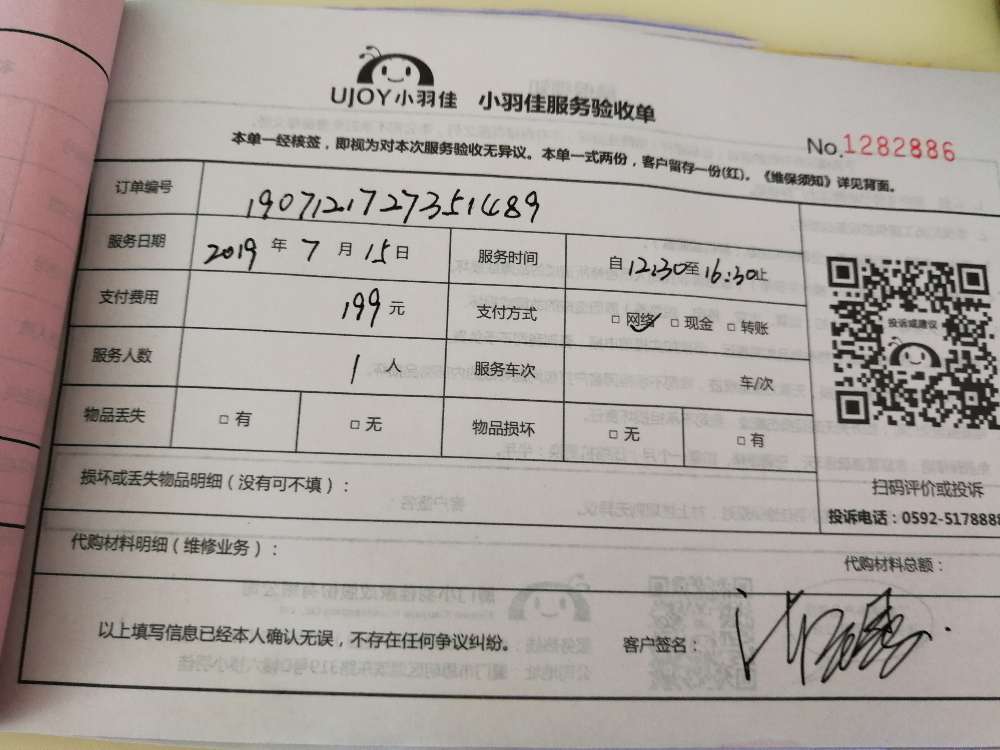 UJOY小羽佳 小羽佳服务验收单
No.1282886
本单一经核签，即视为对本次服务验收无异议。本单一式两份，客户留存一份(红)。《维保须知》详见背面。
订单编号 1907121727351489
服务日期 2019 年 7 月 15 日 服务时间 自 12:30 至 16:30 止
支付费用 199 元 支付方式 □ 网络 □ 现金 □ 转账
服务人数 1 人 服务车次 车/次
物品丢失 □ 有 □ 无 物品损坏 □ 无 □ 有
投诉或建议
扫码评价或投诉
投诉电话：0592-5178888
损坏或丢失物品明细（没有可不填）：
代购材料明细（维修业务）： 代购材料总额：
以上填写信息已经本人确认无误，不存在任何争议纠纷。 客户签名：